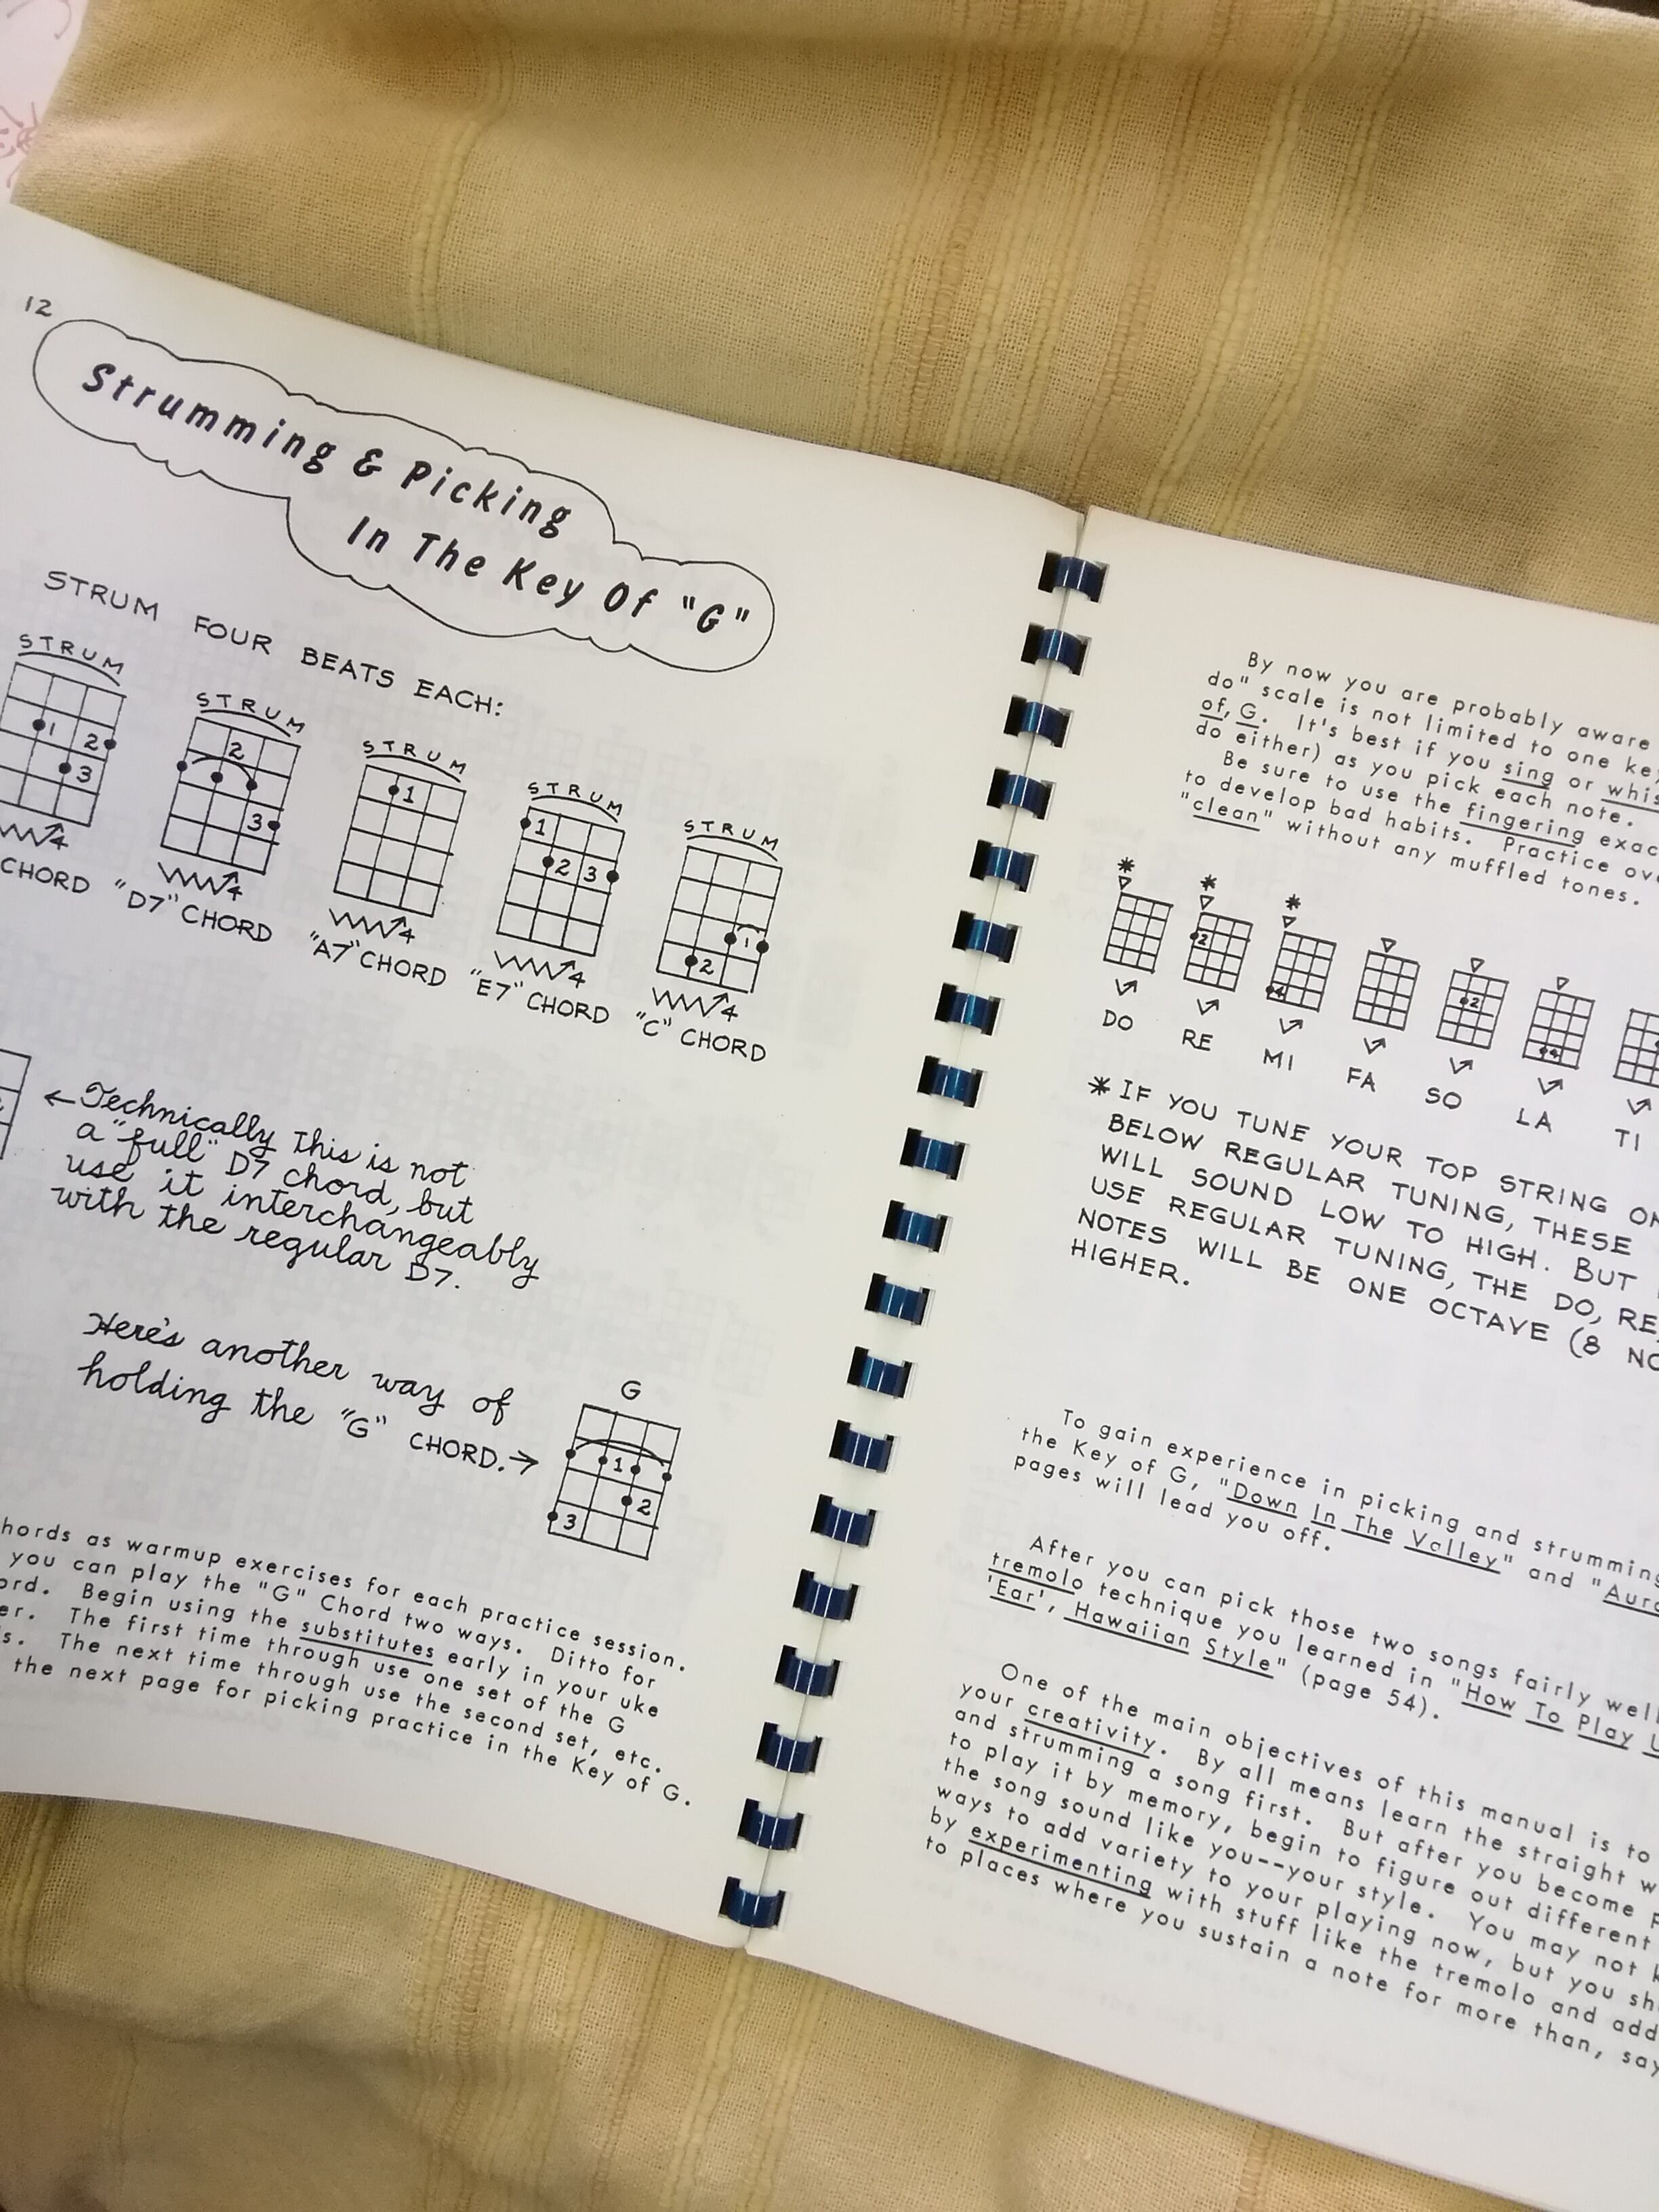 12
Strumming & Picking
In The Key Of "G"
STRUM FOUR BEATS EACH:
STRUM STRUM STRUM STRUM STRUM
1 2 3
2 3
1
1 2 3
1 2
4 4 4 4 4
CHORD "D7" CHORD "A7" CHORD "E7" CHORD "C" CHORD
←Technically this is not
a "full" D7 chord, but
use it interchangeably
with the regular D7.
Here's another way of
holding the "G" CHORD.→
G
1
2
3
hords as warmup exercises for each practice session.
you can play the "G" Chord two ways. Ditto for
ord. Begin using the substitutes early in your uke
er. The first time through use one set of the G
s. The next time through use the second set, etc.
the next page for picking practice in the Key of G.
By now you are probably aware
do" scale is not limited to one key
of, G. It's best if you sing or whis
do either) as you pick each note.
Be sure to use the fingering exac
to develop bad habits. Practice ove
"clean" without any muffled tones.
* * *
2 4 2 4
DO RE MI FA SO LA TI
* IF YOU TUNE YOUR TOP STRING ON
BELOW REGULAR TUNING, THESE
WILL SOUND LOW TO HIGH. BUT
USE REGULAR TUNING, THE DO, RE,
NOTES WILL BE ONE OCTAVE (8 NO
HIGHER.
To gain experience in picking and strumming
the Key of G, "Down In The Valley" and "Aura
pages will lead you off.
After you can pick those two songs fairly well
tremolo technique you learned in "How To Play U
'Ear', Hawaiian Style" (page 54).
One of the main objectives of this manual is to
your creativity. By all means learn the straight w
and strumming a song first. But after you become p
to play it by memory, begin to figure out different
the song sound like you--your style. You may not k
ways to add variety to your playing now, but you sh
by experimenting with stuff like the tremolo and add
to places where you sustain a note for more than, say